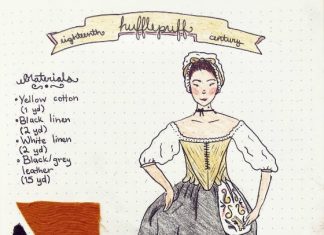 eighteenth hufflepuff century
Materials
• Yellow cotton
(1 yd)
• Black linen
(2 yd)
• White linen
(2 yd)
• Black/grey
leather
(15 yd)